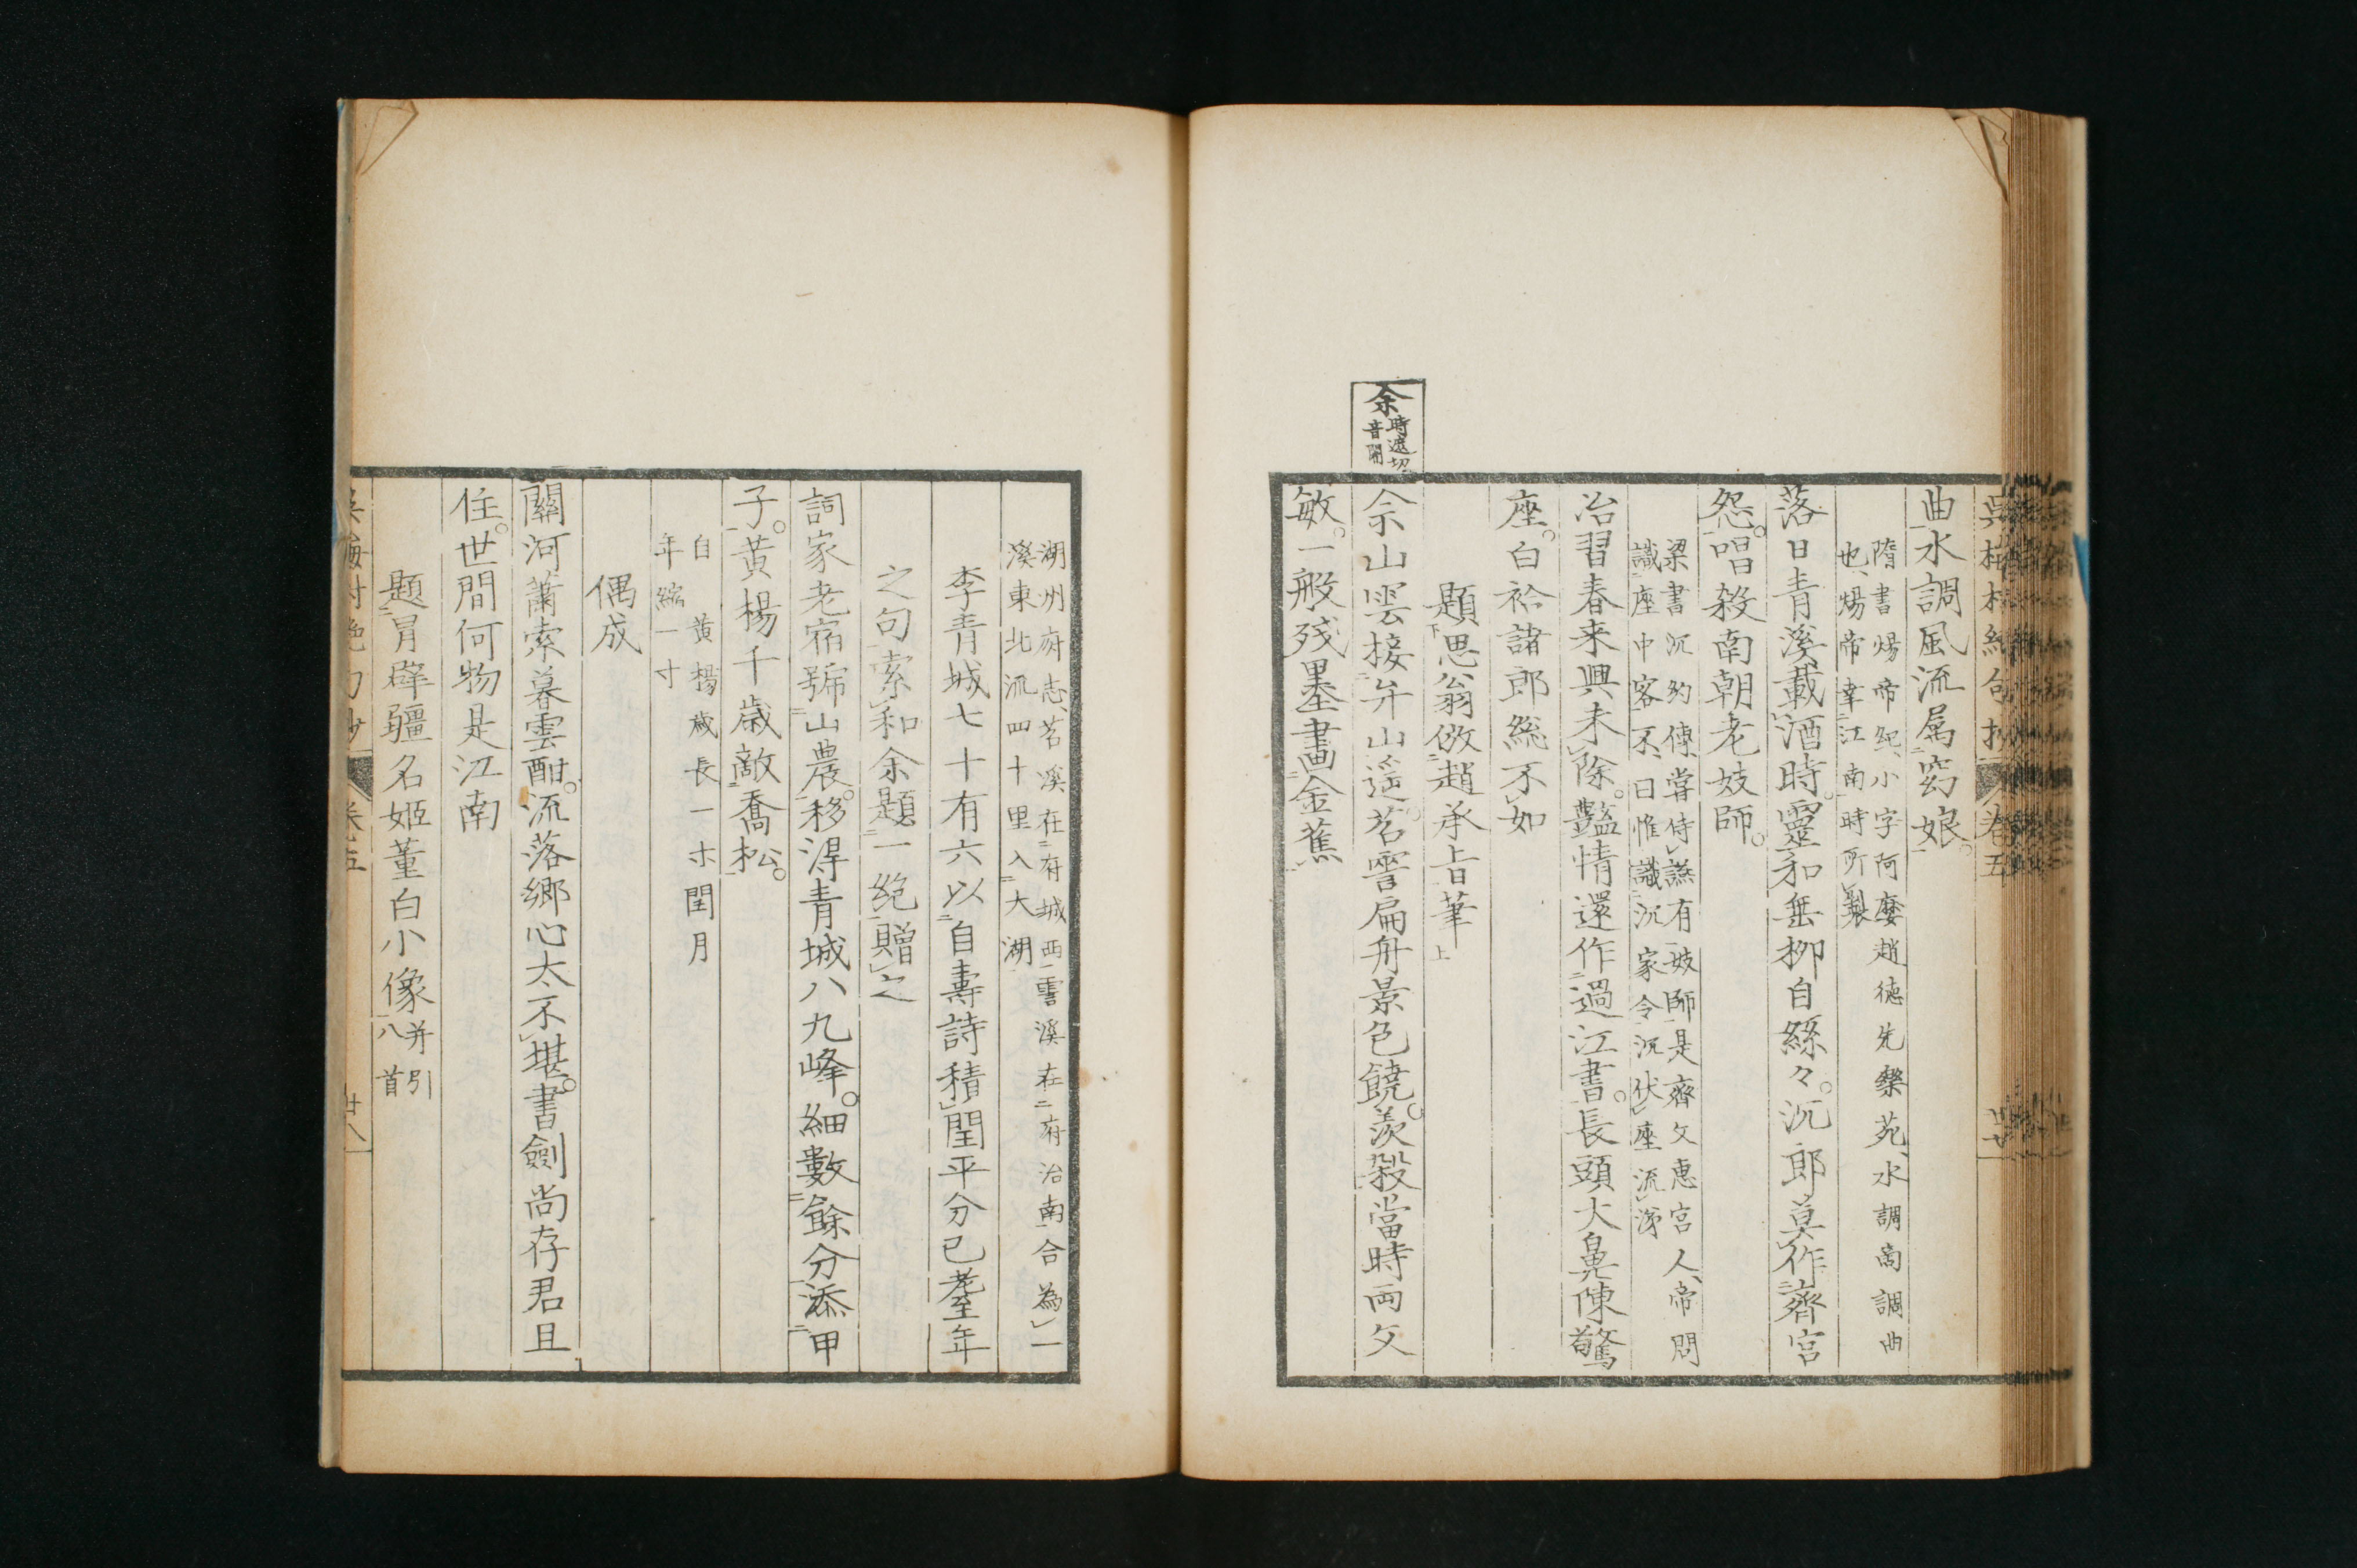 吳梅村絶句抄 卷五
曲水調風流属窈娘。
隋書煬帝紀、小字阿麼趙德先樂苑、水調商調曲
也、煬帝幸江南時所製
落日青溪載酒時。靈和垂柳自絲々。沉郎莫作齊宮
怨。唱殺南朝老妓師。
梁書沉約傳、嘗侍讌有妓師是齊文惠宮人、帝問
識座中客不、曰惟識沉家令沉伏座流涕
冶習春来興未除。豔情還作過江書。長頭大鼻陳驚
座。白袷諸郎総不如
題思翁倣趙承旨筆
佘時遮切
音闍
佘山雲接弁山遥。苕霅扁舟景色饒。羨殺當時両文
敏。一般殘墨畫金蕉
湖州府志、苕溪在府城西霅溪在府治南合為一
溪東北流四十里入大湖
李青城七十有六以自壽詩積閏平分已耋年
之句索和余題一絶贈之
詞家老宿號山農。移得青城八九峰。細數餘分添甲
子。黄楊千歳敵喬松。
自 黄楊歳長一寸閏月
年縮一寸
偶成
關河蕭索暮雲酣。流落郷心太不堪。書劍尚存君且
住。世間何物是江南
題冒辟疆名姬董白小像并引
八首
卷五 廿八